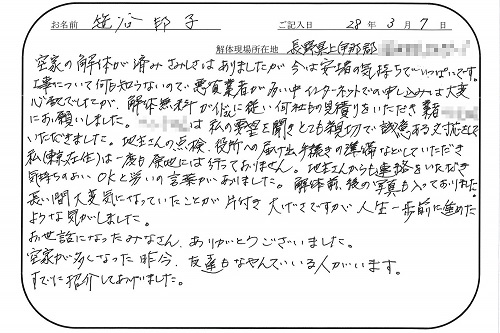 お名前 笹谷邦子 ご記入日 28年3月7日
解体現場所在地 長野県上伊那郡
空家の解体が済み さみしさはありましたが 今は安堵の気持ちでいっぱいです。
工事について何も知らないので 悪質業者が多い中 インターネットでの申し込みは大変
心配でしたが、解体無料 が伝に従い 何社もの見積りをいただき 業者
にお願いしました。 は 私の要望を聞き とても親切で 誠意ある対応をして
いただきました。地主さんの点検、役所への届け出手続きの準備などしていただき
私(東京在住)は一度も原地には行っておりません。地主さんからも連絡をいただき
気持ちのよい OKと労いの言葉がありました。解体前、後の写真も入っておりました
長い間大変気になっていたことが 片付き 大げさですが 人生一歩前に進めた
ような気がしました。
お世話になったみなさん、ありがとうございました。
空家が多くなった昨今、友達もなやんでいる人がいます。
すでに紹介してあげました。